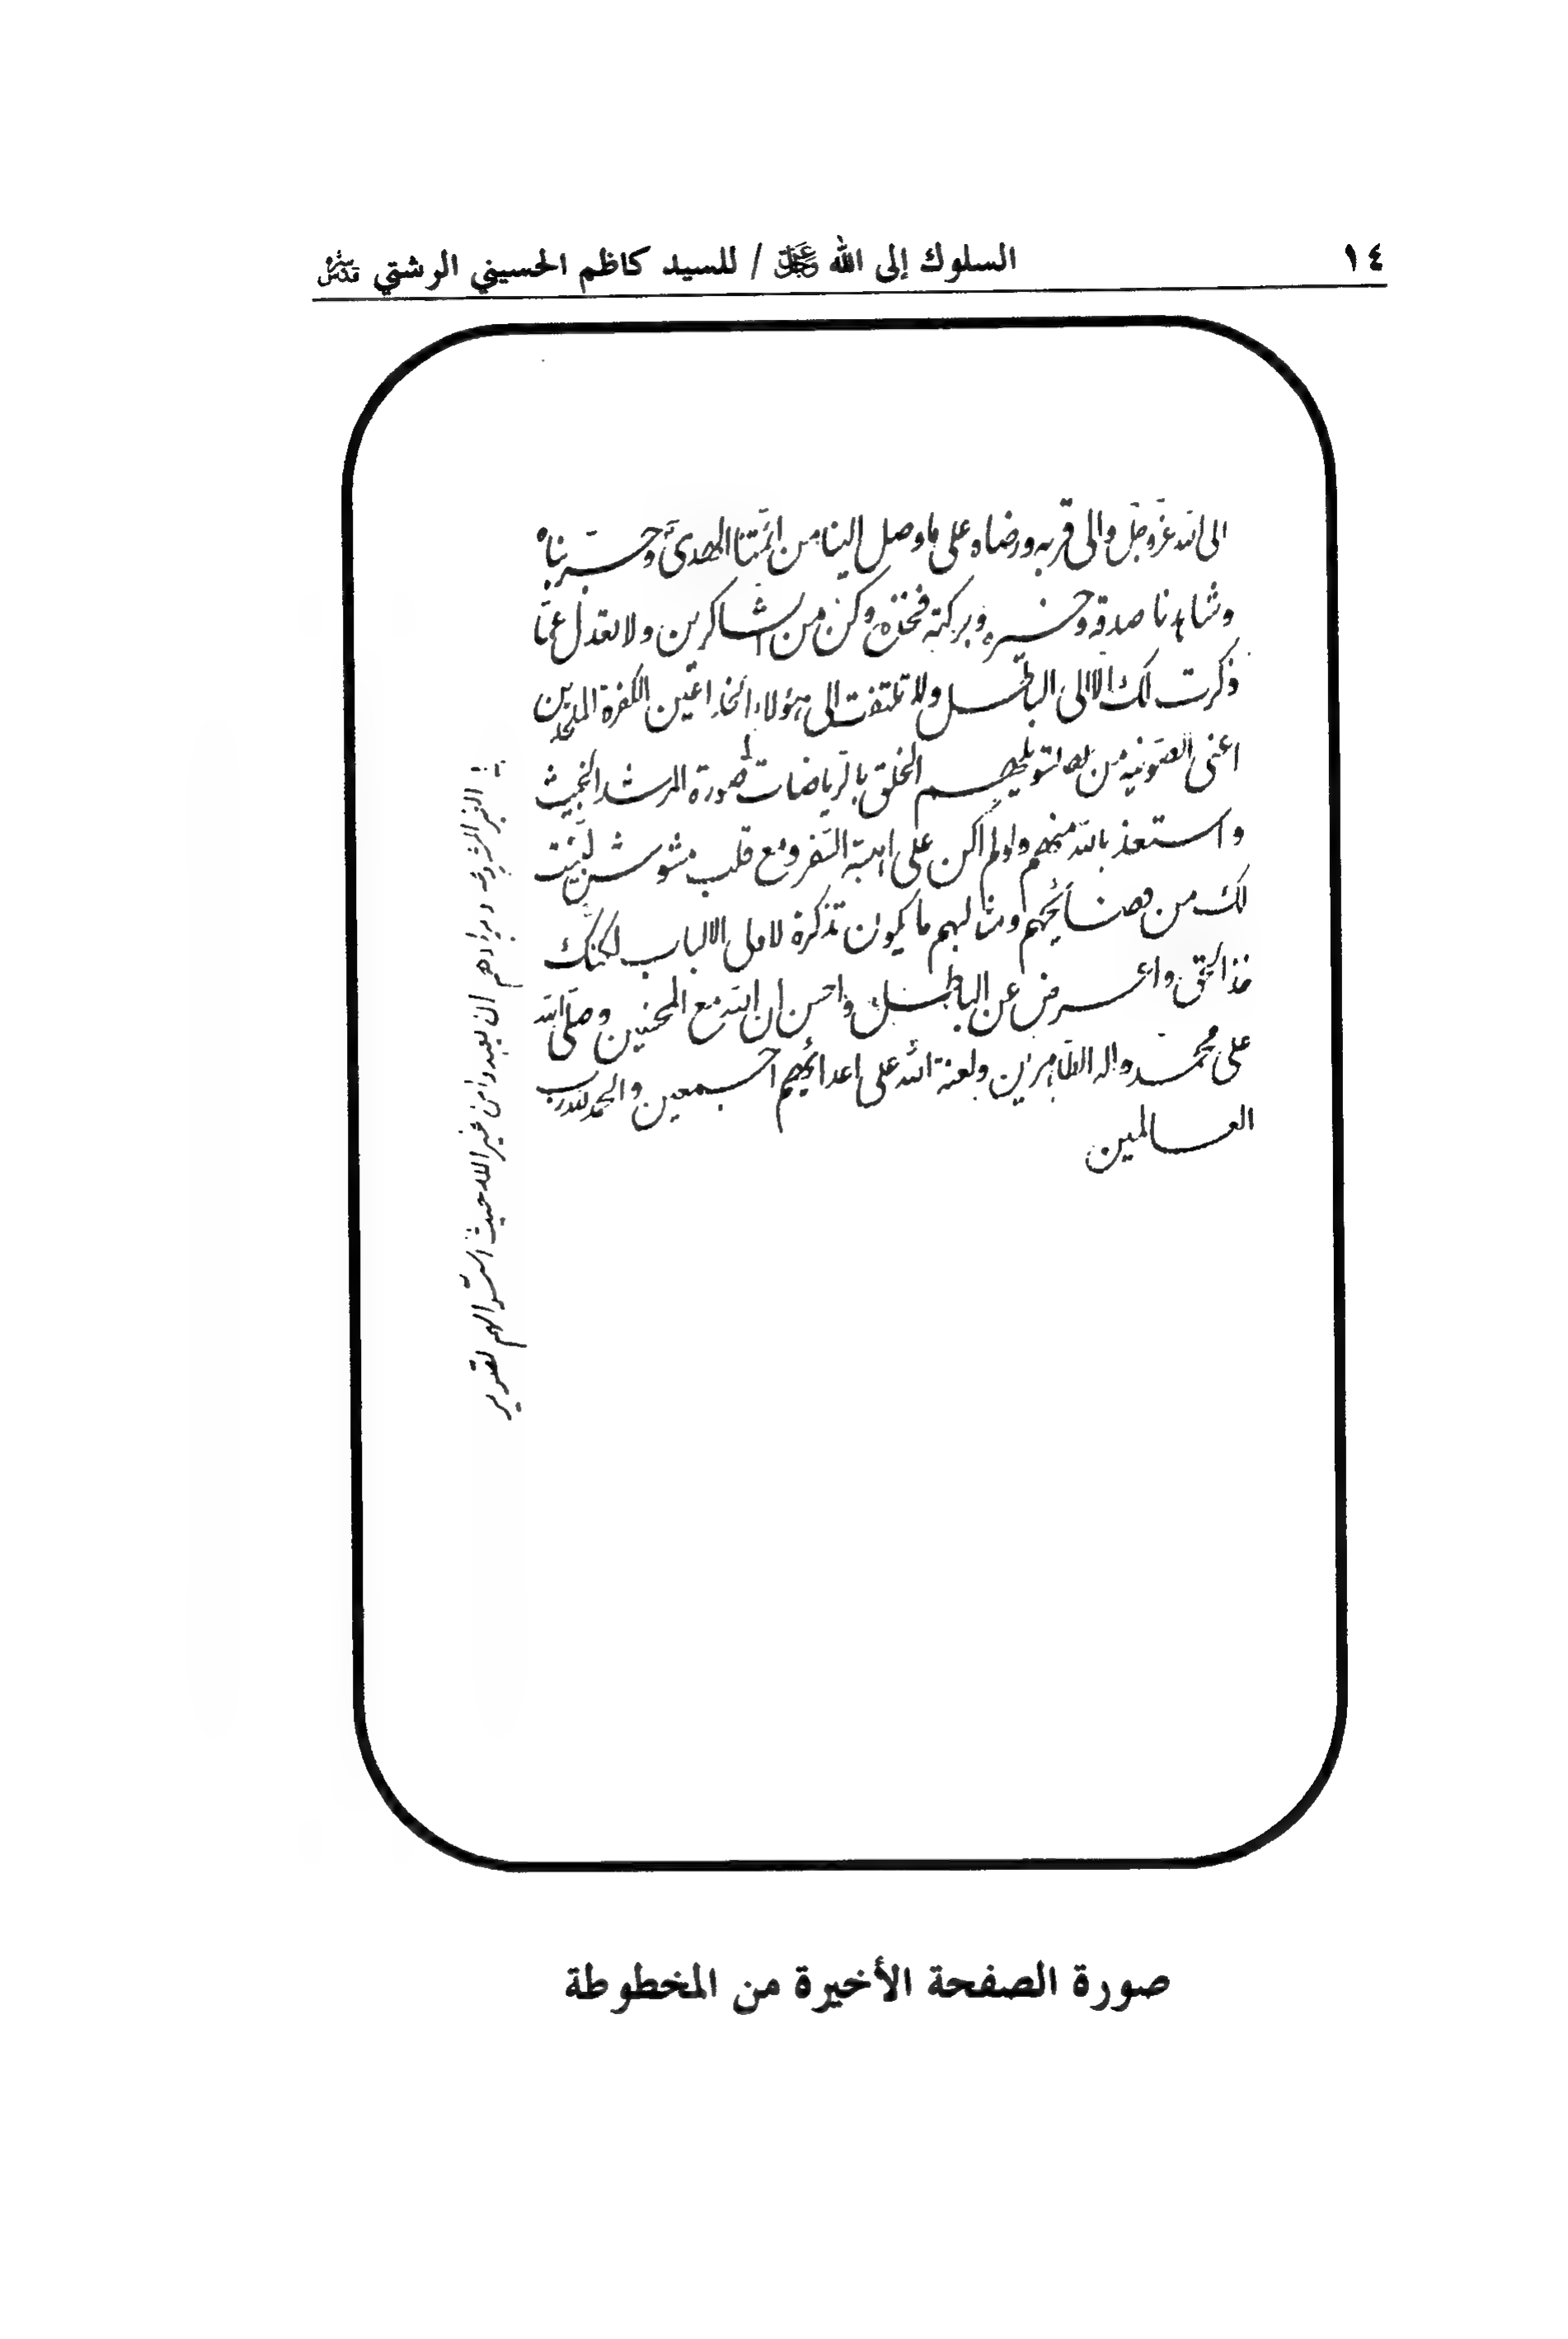 ١٤
السلوك إلى الله عَزَّ وَجَلَّ / للسيد كاظم الحسيني الرشتي قدس سره
الى الله عزّوجلّ والى قربه ورضاه على ما وصل الينا من ائمّتنا الهدىٰ وجرّبناه
وشاهدنا صدقه وخيره وبركته فخذه وكن من الشاكرين ولا تعدل عمّا
ذكرت لك الا الى الباطل ولا تلتفت الى هؤلاء الكفرة الملحدين
اعنى الصّوفيه من الخلق بالرّياضات صورة المرشد الخبيث
واستعذ بالله منهم ولو لم اكن على اهبة السّفر ومع قلب مشوش لبيّنت
لك من فضائحهم ومثالبهم ما يكون تذكرة لاولى الالباب لكنّك
خذ الحق واعرض عن الباطل واحسن ان الله مع المحسنين وصلّى الله
على محمّد واله الطّاهرين ولعنة الله على اعدائهم اجمعين والحمد لله رب
العالمين
ان يعبدوا من غير الله حيث
صورة الصفحة الأخيرة من المخطوطة